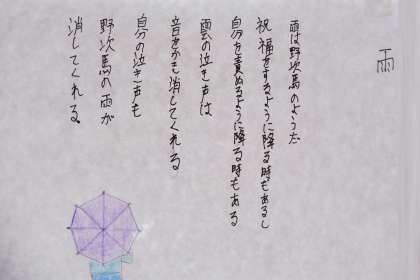 雨
雨は野次馬のようだ
祝福をするように降る時もあるし
自分を責めるように降る時もある
雲の泣き声は
音をかき消してくれる
自分の泣き声も
野次馬の雨が
消してくれる